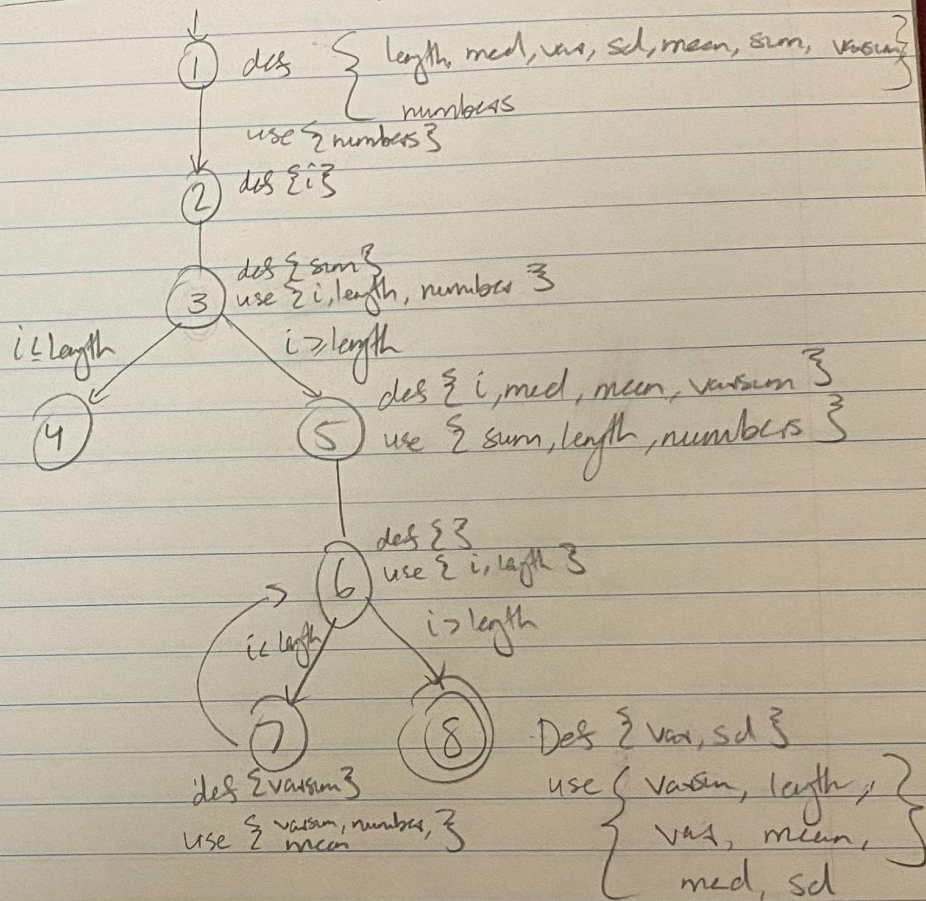 1
1 def { length, med, var, sd, mean, sum, varsum }
numbers
use { numbers }
2 def { i }
def { sum }
3 use { i, length, number }
i ≤ length i ≥ length
def { i, med, mean, varsum }
4 5 use { sum, length, numbers }
def { }
6 use { i, length }
i < length i > length
7 8 Def { var, sd }
def { varsum } use { varsum, length,
use { varsum, number, } var, mean, }
mean
med, sd